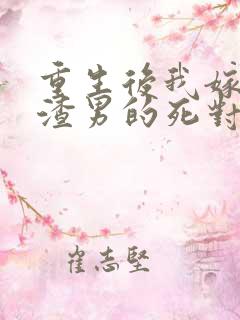 重生後我嫁
渣男的死對
崔志堅